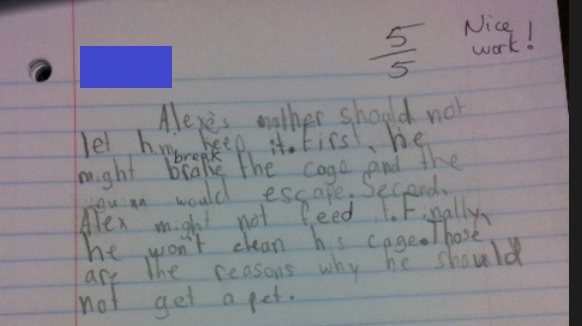 5/5
Nice
work!
Alex's mother should not
let him keep it. First, he
break
might brake the cage and the
would escape. Second,
Alex might not feed it. Finally,
he won't clean his cage. Those
are the reasons why he should
not get a pet.